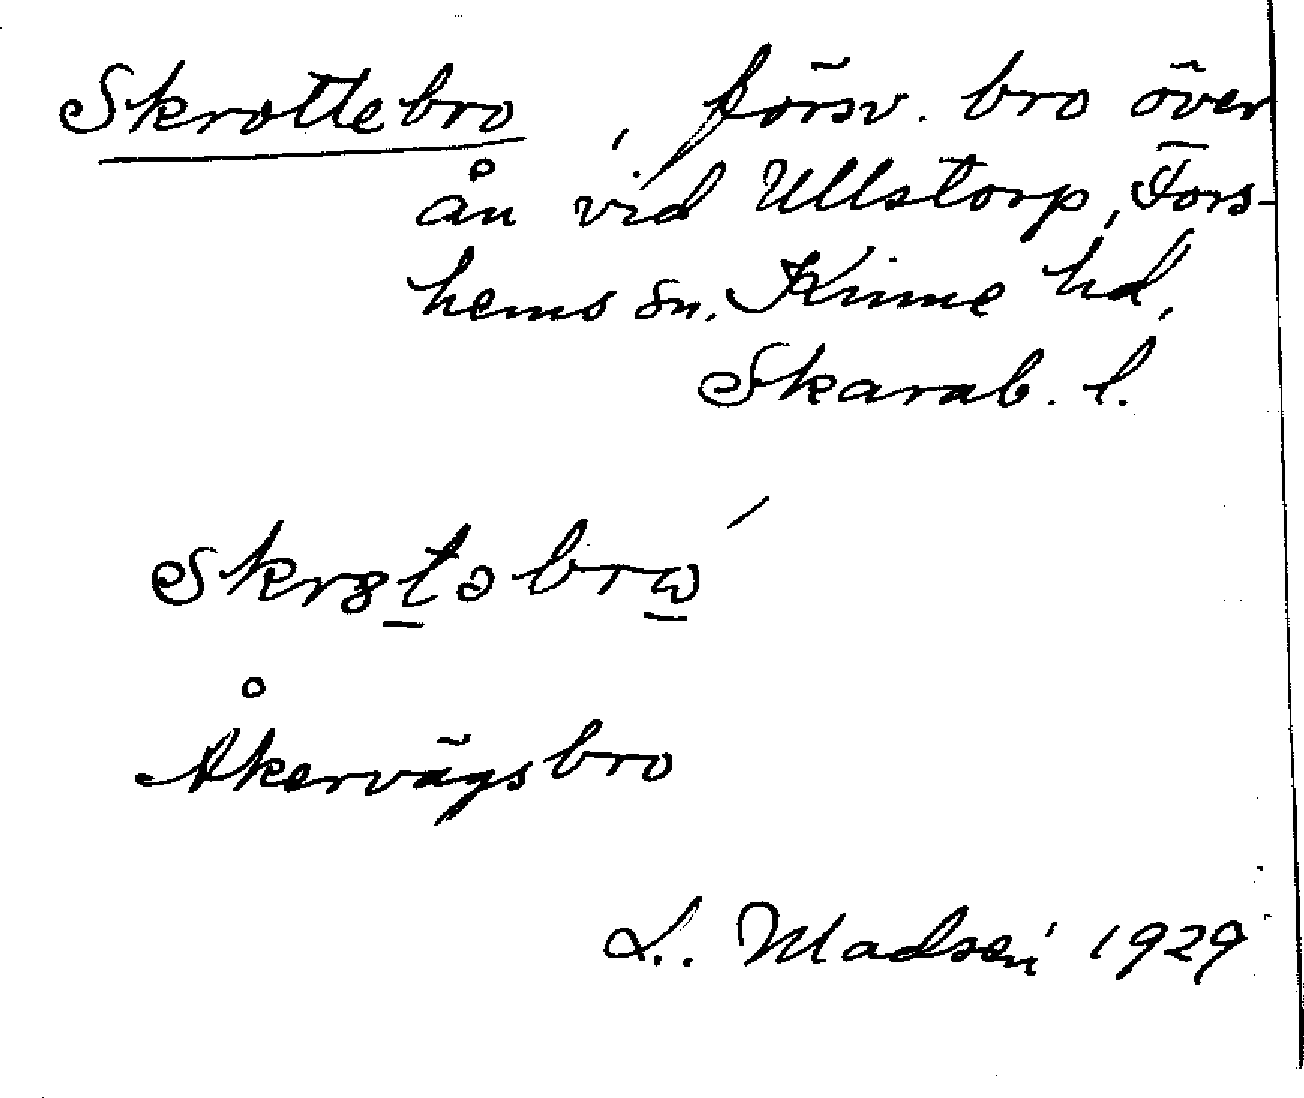 Skrottebro, försv. bro över
ån vid Ullstorp, Fors-
hems sn, Kinne hd,
Skarab. l.
Åkervägsbro
L. Madsén 1929